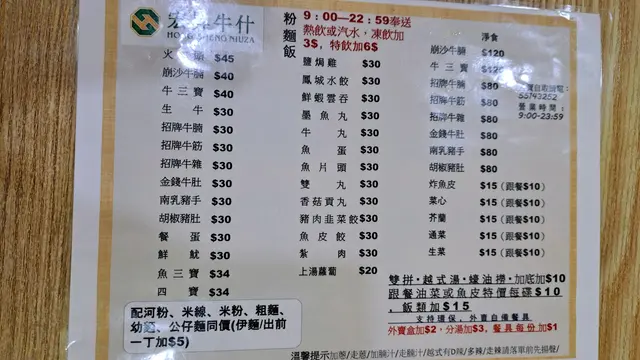 宏昇牛什
HONG SHENG NIUZA
粉麵飯
9：00—22：59奉送
熱飲或汽水，凍飲加
3$，特飲加6$
$45
崩沙牛腩 $40
牛三寶 $40
生牛 $30
招牌牛腩 $30
招牌牛筋 $30
招牌牛雜 $30
金錢牛肚 $30
南乳豬手 $30
胡椒豬肚 $30
餐蛋 $30
鮮魷 $30
魚三寶 $34
四寶 $34
鹽焗雞 $30
鳳城水餃 $30
鮮蝦雲吞 $30
墨魚丸 $30
牛丸 $30
魚蛋 $30
魚片頭 $30
雙丸 $30
香菇貢丸 $30
豬肉韭菜餃 $30
魚皮餃 $30
紮肉 $30
上湯蘿蔔 $20
淨食
崩沙牛腩 $120
牛三寶
招牌牛腩 $80
招牌牛筋 $80
招牌牛雜 $80
金錢牛肚 $80
南乳豬手 $80
胡椒豬肚 $80
炸魚皮 $15（跟餐$10）
菜心 $15（跟餐$10）
芥蘭 $15（跟餐$10）
通菜 $15（跟餐$10）
生菜 $15（跟餐$10）
營業時間：
9:00-23:59
配河粉、米線、米粉、粗麵、
幼麵、公仔麵同價(伊麵/出前
一丁加$5)
雙拼·越式湯·蠔油撈·加底加$10
跟餐油菜或魚皮特價每碟$10
，飯類加$15
支持環保，外賣自備餐具
外賣盒加$2，分湯加$3，餐具每份加$1
溫馨提示加蔥/走蔥/加腩汁/走腩汁/越式有D辣/多辣/走辣請落單前先揚聲/